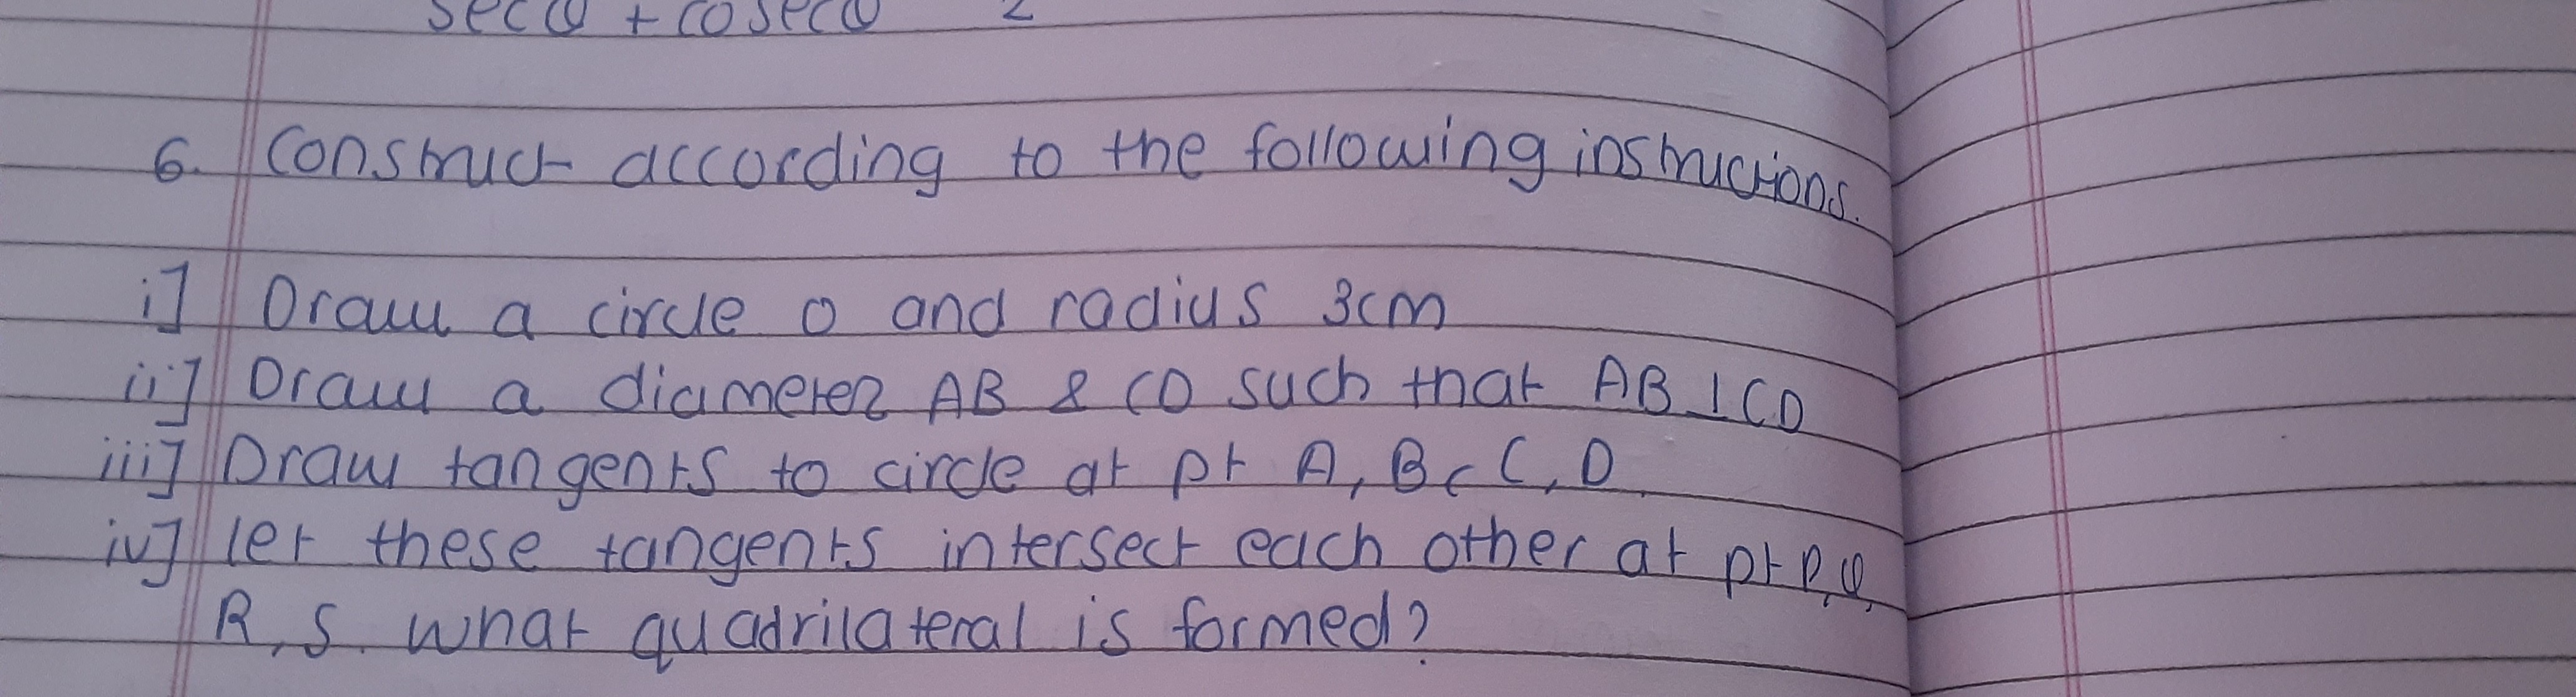 secθ + cosecθ 2
6. Construct according to the following instructions.
i] Draw a circle O and radius 3cm
ii] Draw a diameter AB & CD such that AB ⊥ CD
iii] Draw tangents to circle at pt A, B, C, D
iv] let these tangents intersect each other at pt P, Q,
R, S. what quadrilateral is formed?